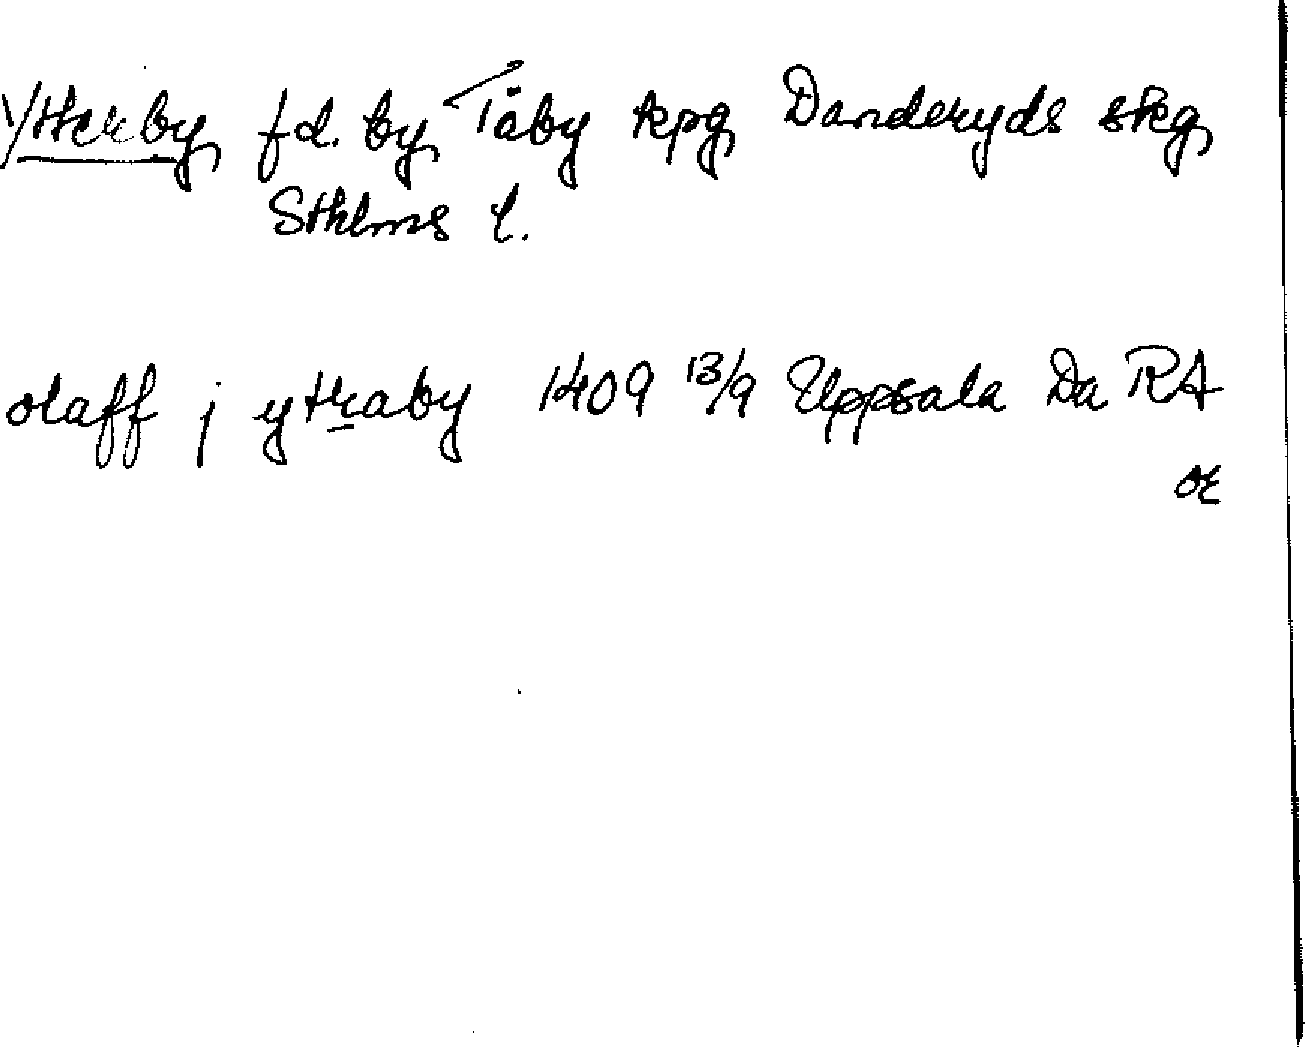 Ytterby, f d. by, Täby kpg, Danderyds skg,
Sthlms l.
olaff j yttraby 1409 13/9 Uppsala Da RA
OE